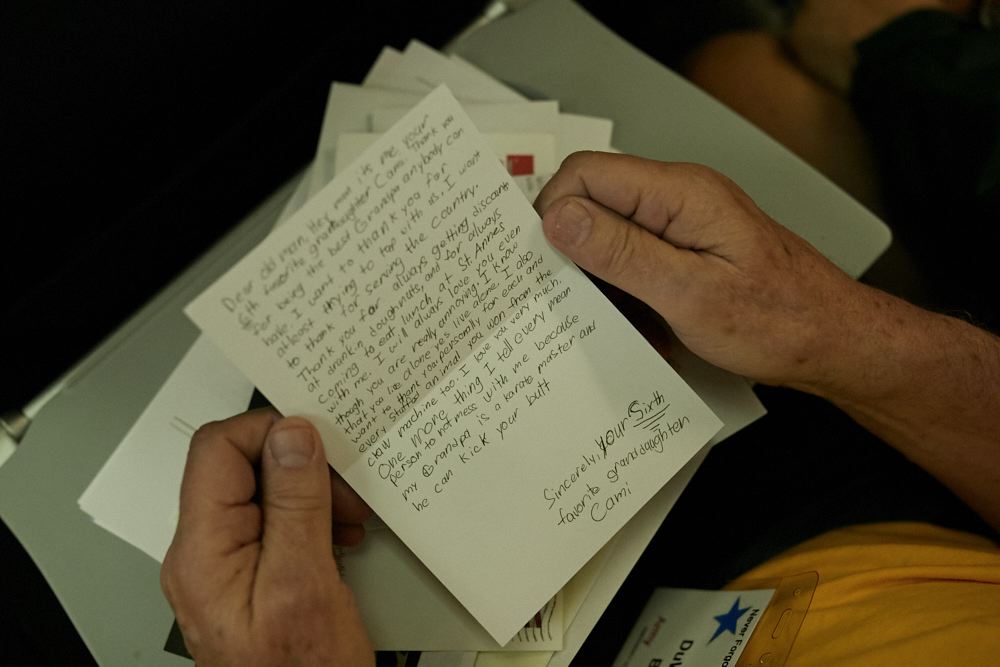 Dear old man, Hey man its me your
6th favorite grandaughter Cami. Thank you
for being the best Grandpa anybody can
have. I want to thank you for
atleast trying to tap with us. I want
to thank for serving the country.
Thank you for always getting discounts
at drankin doughnuts and for always
coming to eat lunch at St. Annes
with me. I will always love you even
though you are really annoying. I know
that you live alone yes live alone. I also
want to thank you personily for each and
every stuffed animal you won from the
claw machine too. I love you very much.
One more thing I tell every mean
person to not mess with me because
my Grandpa is a karate master and
he can kick your butt
Sincerely, your Sixth
favorite granddaughter
Cami
Never Forgo
Army